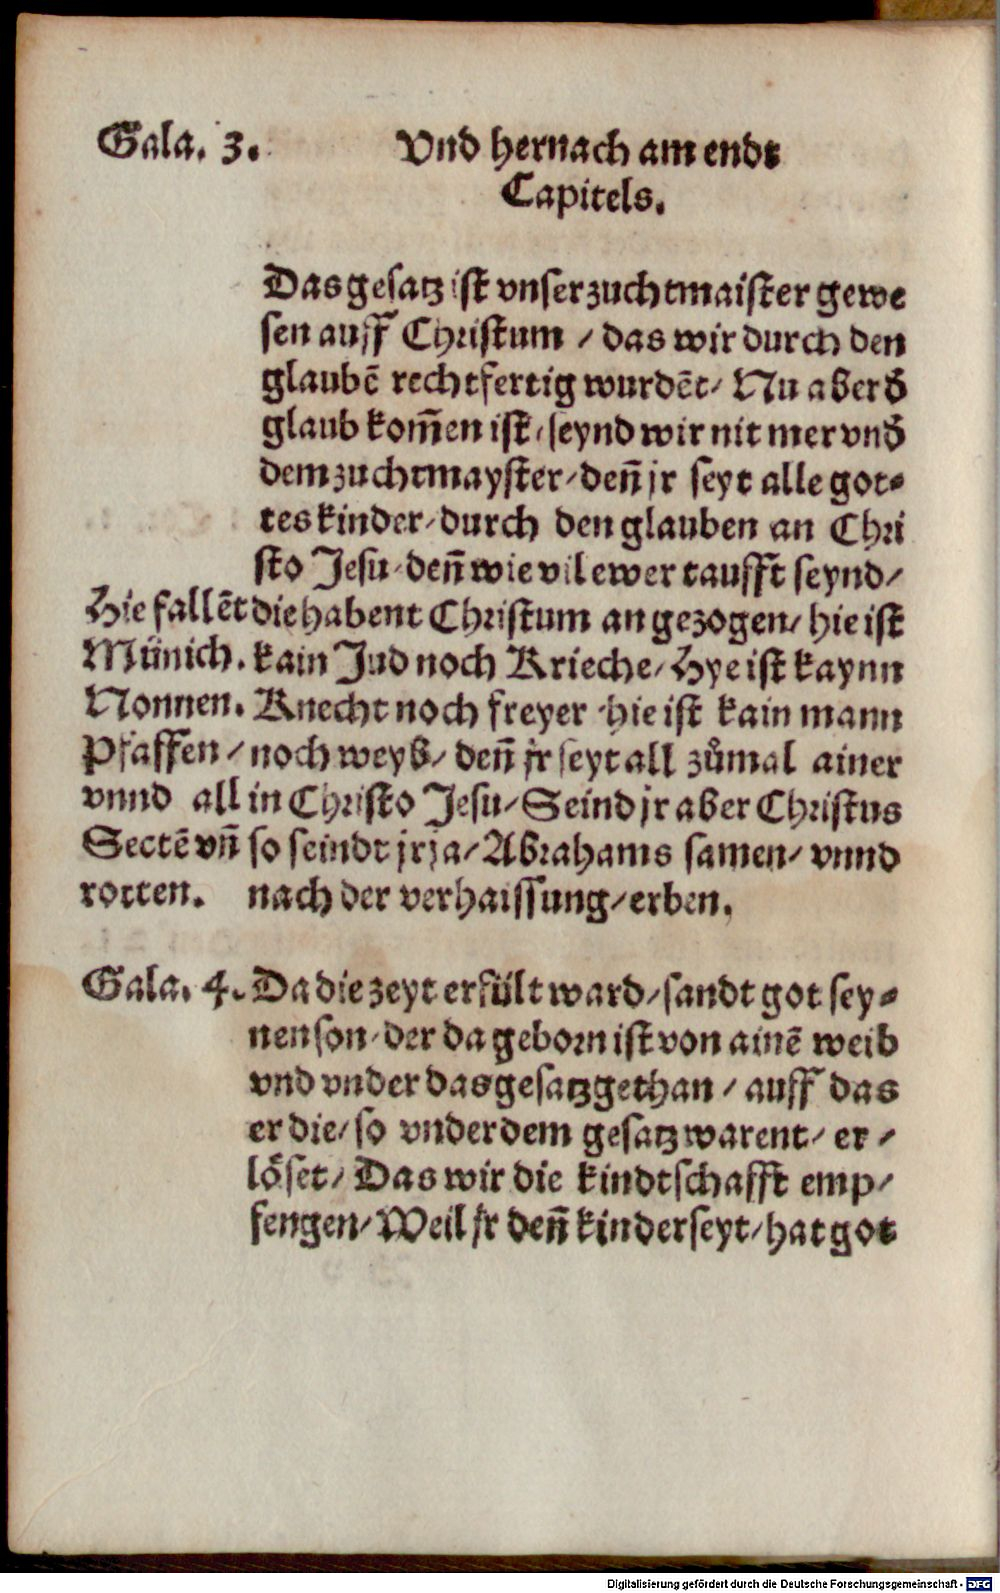 Gala. 3.
Vnd hernach am endt
Capitels.
Das gesatz ist vnser zuchtmaister gewe
sen auff Christum / das wir durch den
glaubē rechtfertig wurdēt / Nu aber d̄
glaub kom̄en ist / seynd wir nit mer vnd̄
dem zuchtmayster / den̄ jr seyt alle got-
tes kinder / durch den glauben an Chri
sto Jesu / den̄ wie vil ewer taufft seynd /
die habent Christum an gezogen / hie ist
kain Jud noch Krieche / Hye ist kaynn
Knecht noch freyer / hie ist kain mann
noch weyb / den̄ jr seyt all zůmal ainer
in Christo Jesu / Seind jr aber Christus
so seindt jr ja / Abrahams samen / vnnd
nach der verhaissung / erben.
Hie fallēt
Münich.
Nonnen.
Pfaffen /
vnnd all
Sectē vn̄
rotten.
Gala. 4.
Da die zeyt erfült ward / sandt got sey-
nen son / der da geborn ist von ainē weib
vnd vnder das gesatz gethan / auff das
er die / so vnder dem gesatz warent / er /
löset / Das wir die kindtschafft emp /
fengen / Weil jr den̄ kinder seyt / hat got
Digitalisierung gefördert durch die Deutsche Forschungsgemeinschaft - DFG